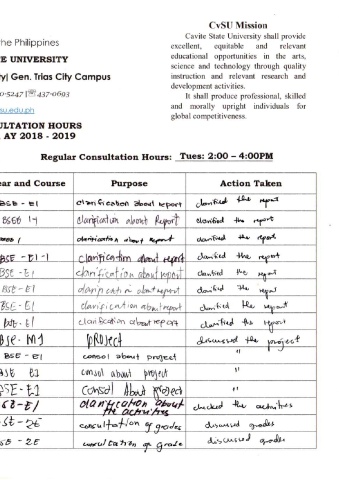 CvSU Mission
Cavite State University shall provide
excellent, equitable and relevant
educational opportunities in the arts,
science and technology through quality
instruction and relevant research and
development activities.
It shall produce professional, skilled
and morally upright individuals for
global competitiveness.
the Philippines
E UNIVERSITY
ty| Gen. Trias City Campus
0-5247 |☏ 437-0693
su.edu.ph
ULTATION HOURS
AY 2018 - 2019
Regular Consultation Hours: Tues: 2:00 – 4:00PM
ear and Course Purpose Action Taken
BSE - E1 clarification about report clarified the report
BSEE 1-1 clarification about Report clarified the report
clarification about report clarified the report
BSE - E1-1 clarification about report clarified the report
BSE - E1 clarification about report clarified the report
BSE - E1 clarification about report clarified the report
BSE - E1 clarification about report clarified the report
BSE - E1 clarification about report clarified the report
BSE - M1 project discussed the project
BSE - E1 consol about project "
BSE E1 consol about project "
BSE - E1 Consol About project "
SE-E1 clarification about the activities checked the activities
SE - 2E consultation of grades discussed grades
SE - 2E consultation of grade discussed grades